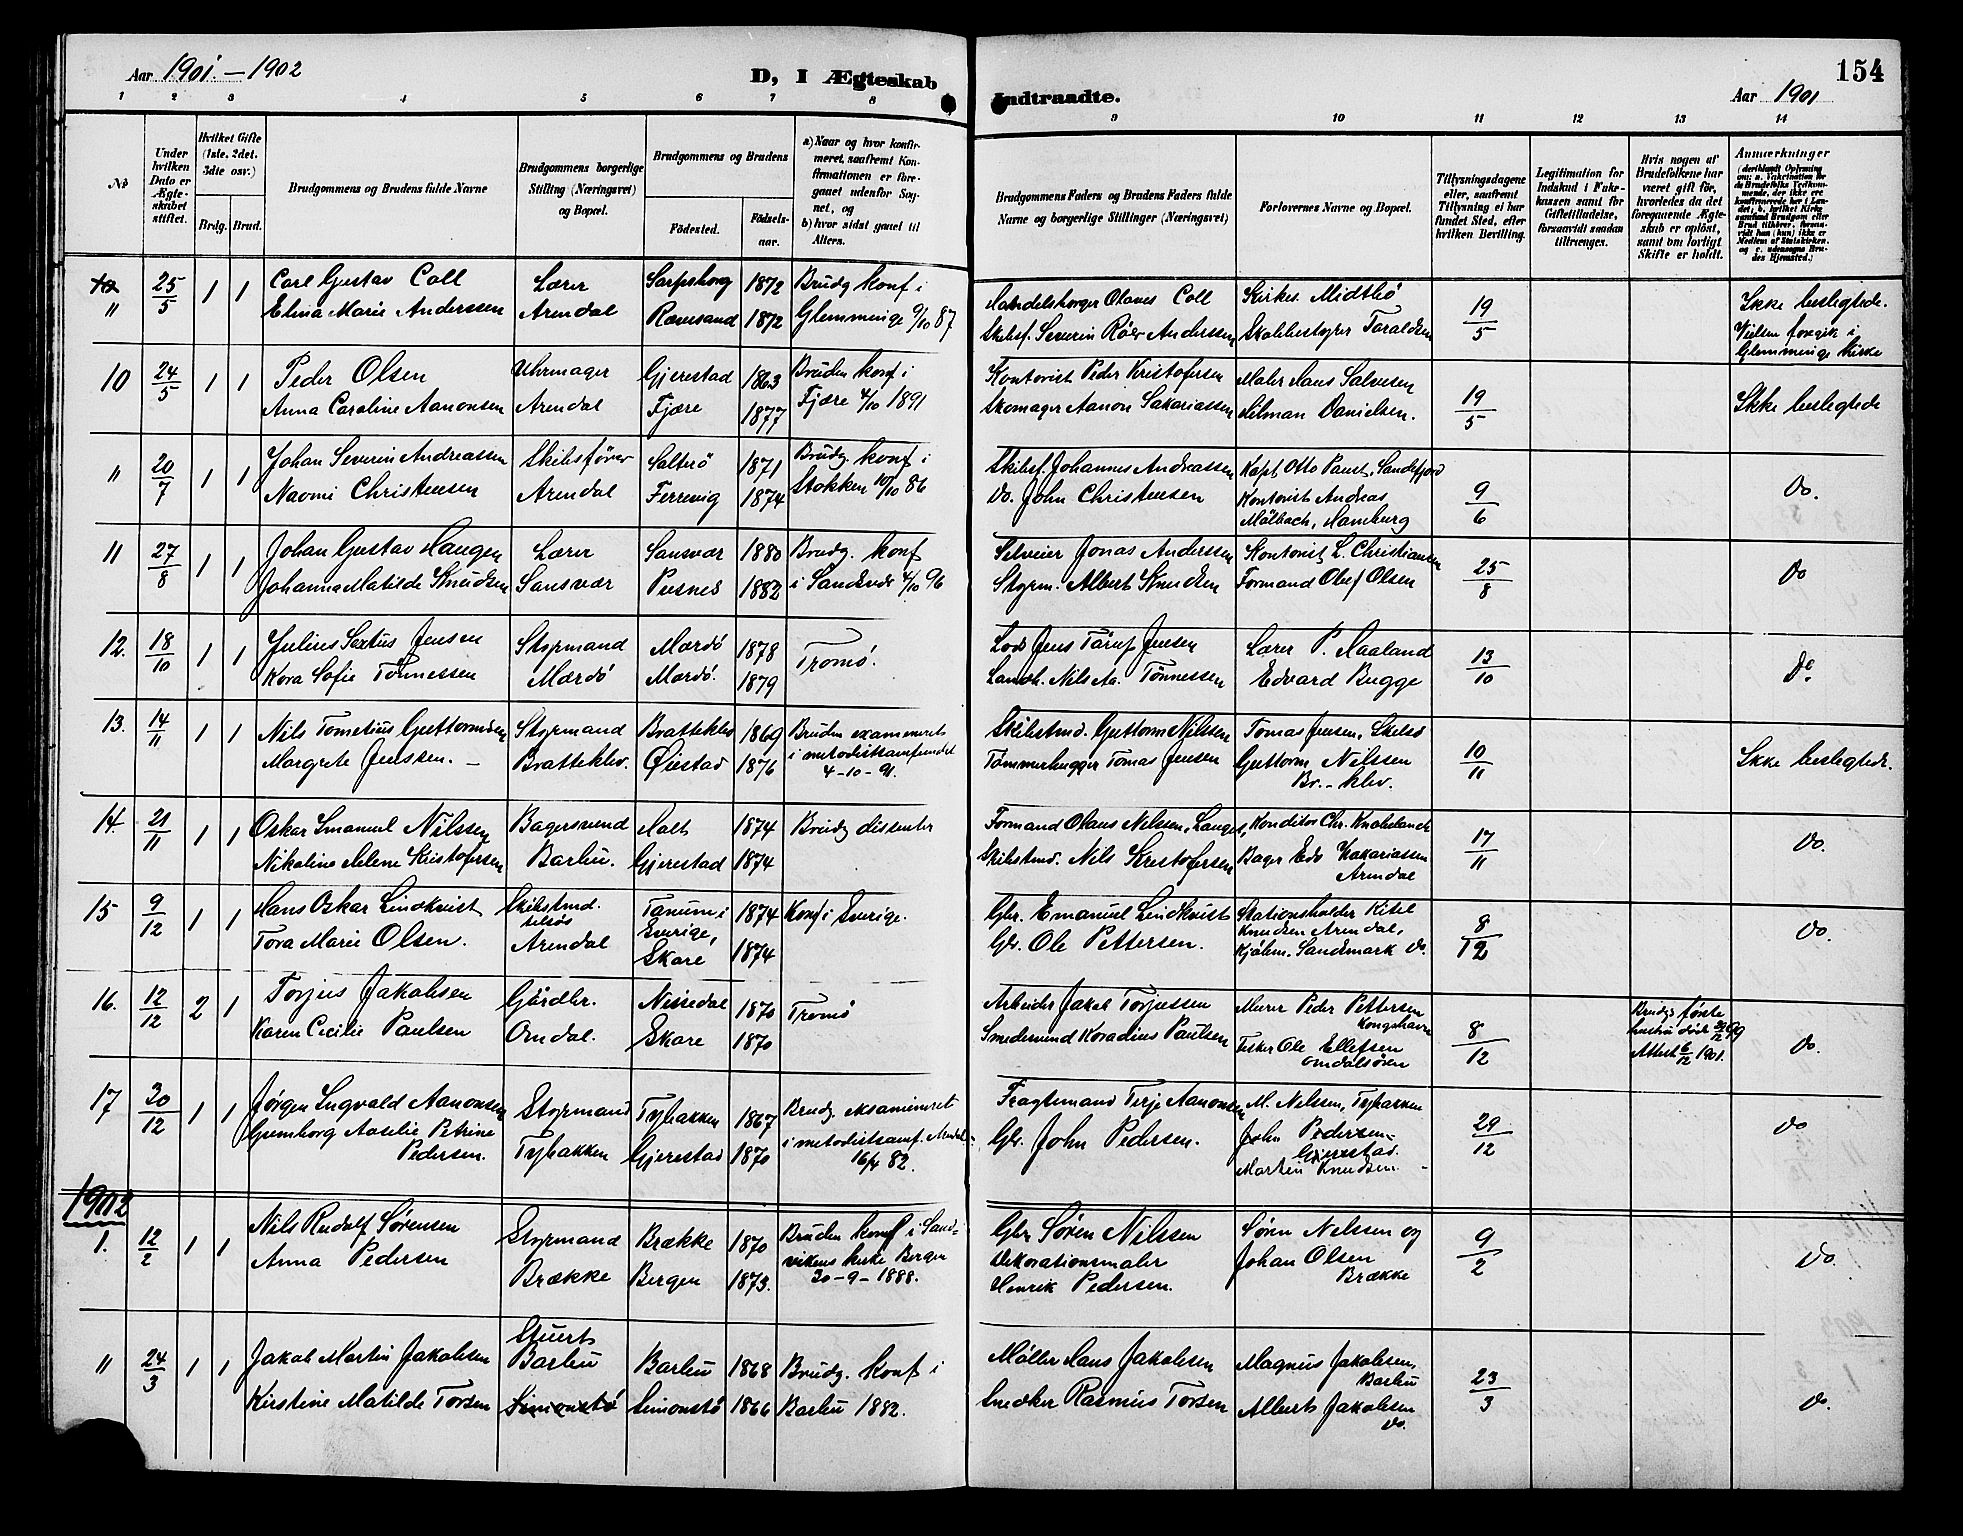 Aar 1901. - 1902
D, I Ægteskab
Indtraadte.
154
Aar 1901
1 2 3 4 5 6 7 8 9 10 11 12 13 14
No
Under hvilken Dato er Ægteskabet stiftet.
Hvilket Gifte (1ste, 2det, 3dte osv.)
Brdg. Brud.
Brudgommens og Brudens fulde Navne
Brudgommens borgerlige Stilling (Næringsvei) og Bopæl.
Brudgommens og Brudens
Fødested.
Fødselsaar.
a) Naar og hvor konfirmeret, saafremt Konfirmationen er foregaaet udenfor Sognet, og
b) hvor sidst gaaet til Alters.
Brudgommens Faders og Brudens Faders fulde Navne og borgerlige Stillinger (Næringsvei)
Forlovernes Navne og Bopæl.
Tillysningsdagene eller, saafremt Tillysning ei har fundet Sted, efter hvilken Bevilling.
Legitimation for Indskud i Enkekassen samt for Giftetilladelse, forsaavidt saadan tiltrænges.
Hvis nogen af Brudefolkene har været gift før, hvorledes da det foregaaende Ægteskab er opløst, samt om lovligt Skifte er holdt.
Anmærkninger
10 25/5 1 1 Carl Gustav Coll Lærer Sarpsborg 1872 Brudg konf i Handelsborger Olaves Coll Kirkes. Midtbö 19/5 Ikke beslegtede.
" Elina Marie Anderssen Arendal Rævesand 1872 Glemminge 9/10 87 Skibsf. Severin Röer Anderssen Skolebestyrer Taraldsen Vielsen foregik i Glemminge kirke
10 24/5 1 1 Peder Olsen Uhrmager Gjerestad 1863 Bruden konf i Kontorist Peder Kristofersen Maler Hans Salvesen 19/5 Ikke beslegtede
Anna Caroline Aanonsen Arendal Fjære 1877 Fjære 4/10 1891 Skomager Aanon Sakariassen Hilman Danielsen.
" 20/7 1 1 Johan Severin Andreassen Skibsförer Salterö 1871 Brudg. konf i Skibsf. Johannes Andreassen Kapt Otto Paust, Sandefjord 9/6 Do.
Naomi Christensen Arendal Ferrevig 1874 Stokken 10/10 86 Do. John Christensen Kontorist Andreas
Mölbach, Hamburg
11 27/8 1 1 Johan Gustav Haugen Lærer Sansvær 1880 Brudg. konf Selveier Jonas Anderssen Kontorist L. Christiansen 25/8 Do
Johanna Matilde Knudsen Sansvær Pusnes 1882 i Sandsvær 4/10 96 Styrm. Albert Knudsen Formand Olaf Olsen
12. 18/10 1 1 Julius Sextus Jensen Styrmand Mærdö 1878 Tromö. Lods Jens Tärup Jensen Lærer P. Aaland 13/10 Do
Kora Sofie Tönnessen Mærdö Mærdö. 1879 Landh. Nils Aa. Tönnessen Edvard Bugge
13. 14/11 1 1 Nils Tometius Guttormsen Styrmand Bratteklev 1869 Bruden examineret Skibstmd. Guttorm Nilssen Tomas Jensen, Skilsö 10/11 Ikke beslegtede.
Margrete Jenssen. - Bratteklev. Öiestad 1876 i metodistsamfundet Tömmerhugger Tomas Jensen Guttorm Nilssen
4-10-91. Br.-klev.
14. 21/11 1 1 Oskar Imanuel Nilssen Bagersvend Holt 1874 Brudg dissenter Formand Olaus Nilsen, Langs. Konditor Chr. Knabelauch 17/11 Do.
Nikoline Helene Kristofersen Barbu. Gjerestad 1874 Skibstmd. Nils Kristofersen Bager Edv Zakariassen
Arendal
15 9/12 1 1 Hans Oskar Lindkvist Skibstmd. Tanum i 1874 Konf i Sverige. Gbr. Emanuel Lindkvist Stationsholder Kitil 8/12 Do.
tilsös Sverige, Knudsen Arendal,
Tora Marie Olsen. Arendal Skare 1874 Gbr. Ole Pettersen. Kjöbm. Sandsmark do.
16. 12/12 2 1 Torjus Jakobsen Gårdbr. Nissedal 1870 Tromö Arbeider Jakob Torjussen Murer Peder Pettersen Kongshavn 8/12 Brudgs förste hustru döde 29/12 99 Do.
Karen Cecilie Paulsen Omdal. Skare 1870 Smedesvend Koradius Paulsen Fisker Ole Ellefsen Omdalsören Attest 6/12 1901.
17 30/12 1 1 Jörgen Ingvald Aanonsen Styrmand Tybakken 1867 Brudg. eksamineret Fragtemand Terje Aanonsen M. Nilssen, Tybakken 29/12 Do
Gunborg Aaselie Petrine Tybakken Gjerestad 1870 i metodistsamf. Arendal Gbr. John Pedersen. John Pedersen Gjerestad.
Pedersen. 16/4 82. Martin Knudsen
1902
1. 12/2 1 1 Nils Rudolf Sörensen Styrmand Brække 1870 Bruden konf i Sand- Gbr Sören Nilssen Sörn Nelssen og 9/2 Do.
Anna Pedersen Brække Bergen 1873. vikens kirke Bergen Dekorationsmaler Johan Olsen
30-9-1888. Henrik Pedersen. Brække
" 24/3 1 1 Jakob Martin Jakobsen Stuert Barbu Barbu 1868 Brudg. konf i Möller Hans Jakobsen Magnus Jakobsen, Barbu 23/3
Kirstine Matilde Torsen Simonstö Simonstö 1866 Barbu 1882. Snedker Rasmus Torsen Alberts Jakobsen do. Do.